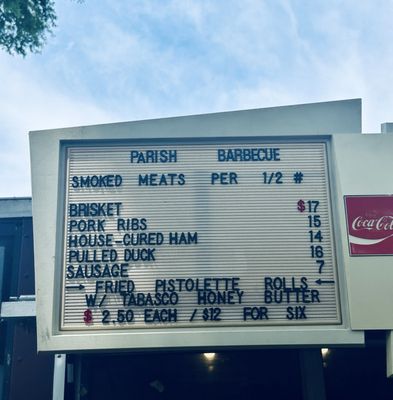 PARISH BARBECUE
SMOKED MEATS PER 1/2 #
BRISKET $17
PORK RIBS 15
HOUSE-CURED HAM 14
PULLED DUCK 16
SAUSAGE 7
→ FRIED PISTOLETTE ROLLS ←
W/ TABASCO HONEY BUTTER
$ 2.50 EACH / $12 FOR SIX
Coca-Cola